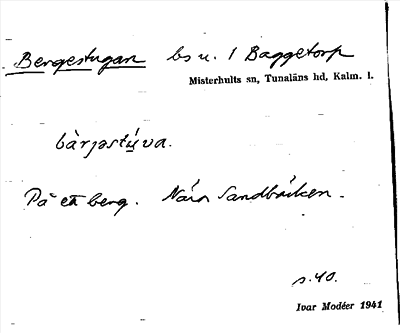 Bergestugan bs u. 1 Baggetorp
Misterhults sn, Tunaläns hd, Kalm. l.
bàrjəstu̲va.
På ett berg. Nära Sandbäcken.
s. 40.
Ivar Modéer 1941